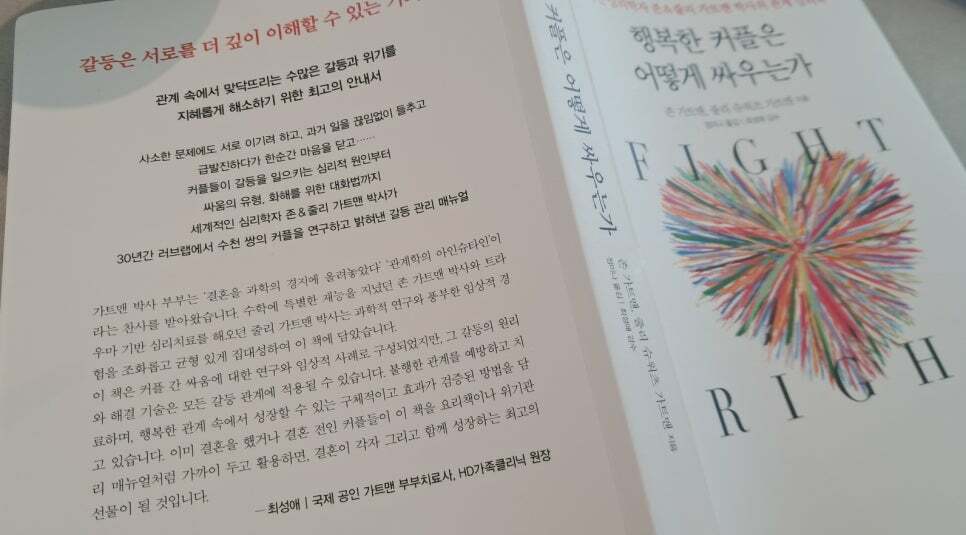 갈등은 서로를 더 깊이 이해할 수 있는
관계 속에서 맞닥뜨리는 수많은 갈등과 위기를
지혜롭게 해소하기 위한 최고의 안내서
사소한 문제에도 서로 이기려 하고, 과거 일을 끊임없이 들추고
급발진하다가 한순간 마음을 닫고……
커플들이 갈등을 일으키는 심리적 원인부터
싸움의 유형, 화해를 위한 대화법까지
세계적인 심리학자 존&줄리 가트맨 박사가
30년간 러브랩에서 수천 쌍의 커플을 연구하고 밝혀낸 갈등 관리 매뉴얼
가트맨 박사 부부는 ‘결혼을 과학의 경지에 올려놓았다’ ‘관계학의 아인슈타인’이
라는 찬사를 받아왔습니다. 수학에 특별한 재능을 지녔던 존 가트맨 박사와 트라
우마 기반 심리치료를 해오던 줄리 가트맨 박사는 과학적 연구와 풍부한 임상적 경
험을 조화롭고 균형 있게 집대성하여 이 책에 담았습니다.
이 책은 커플 간 싸움에 대한 연구와 임상적 사례로 구성되었지만, 그 갈등의 원리
와 해결 기술은 모든 갈등 관계에 적용될 수 있습니다. 불행한 관계를 예방하고 치
료하며, 행복한 관계 속에서 성장할 수 있는 구체적이고 효과가 검증된 방법을 담
고 있습니다. 이미 결혼을 했거나 결혼 전인 커플들이 이 책을 요리책이나 위기관
리 매뉴얼처럼 가까이 두고 활용하면, 결혼이 각자 그리고 함께 성장하는 최고의
선물이 될 것입니다.
—최성애 | 국제 공인 가트맨 부부치료사, HD가족클리닉 원장
커플은 어떻게 싸우는가
존 가트맨, 줄리 슈워츠 가트맨 지음
행복한 커플은
어떻게 싸우는가
존 가트맨, 줄리 슈워츠 가트맨 지음
FIGHT
RIGH